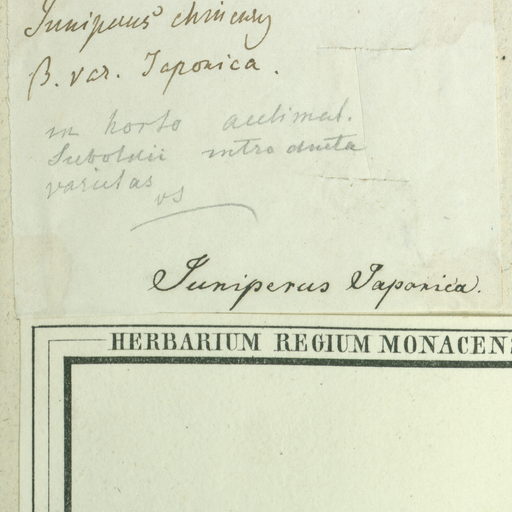 Juniperus chinensis
B. var. Japonica.
in horto acclimat.
Sieboldii introducta
varietas
vs
Juniperus Japonica.
HERBARIUM REGIUM MONACENS